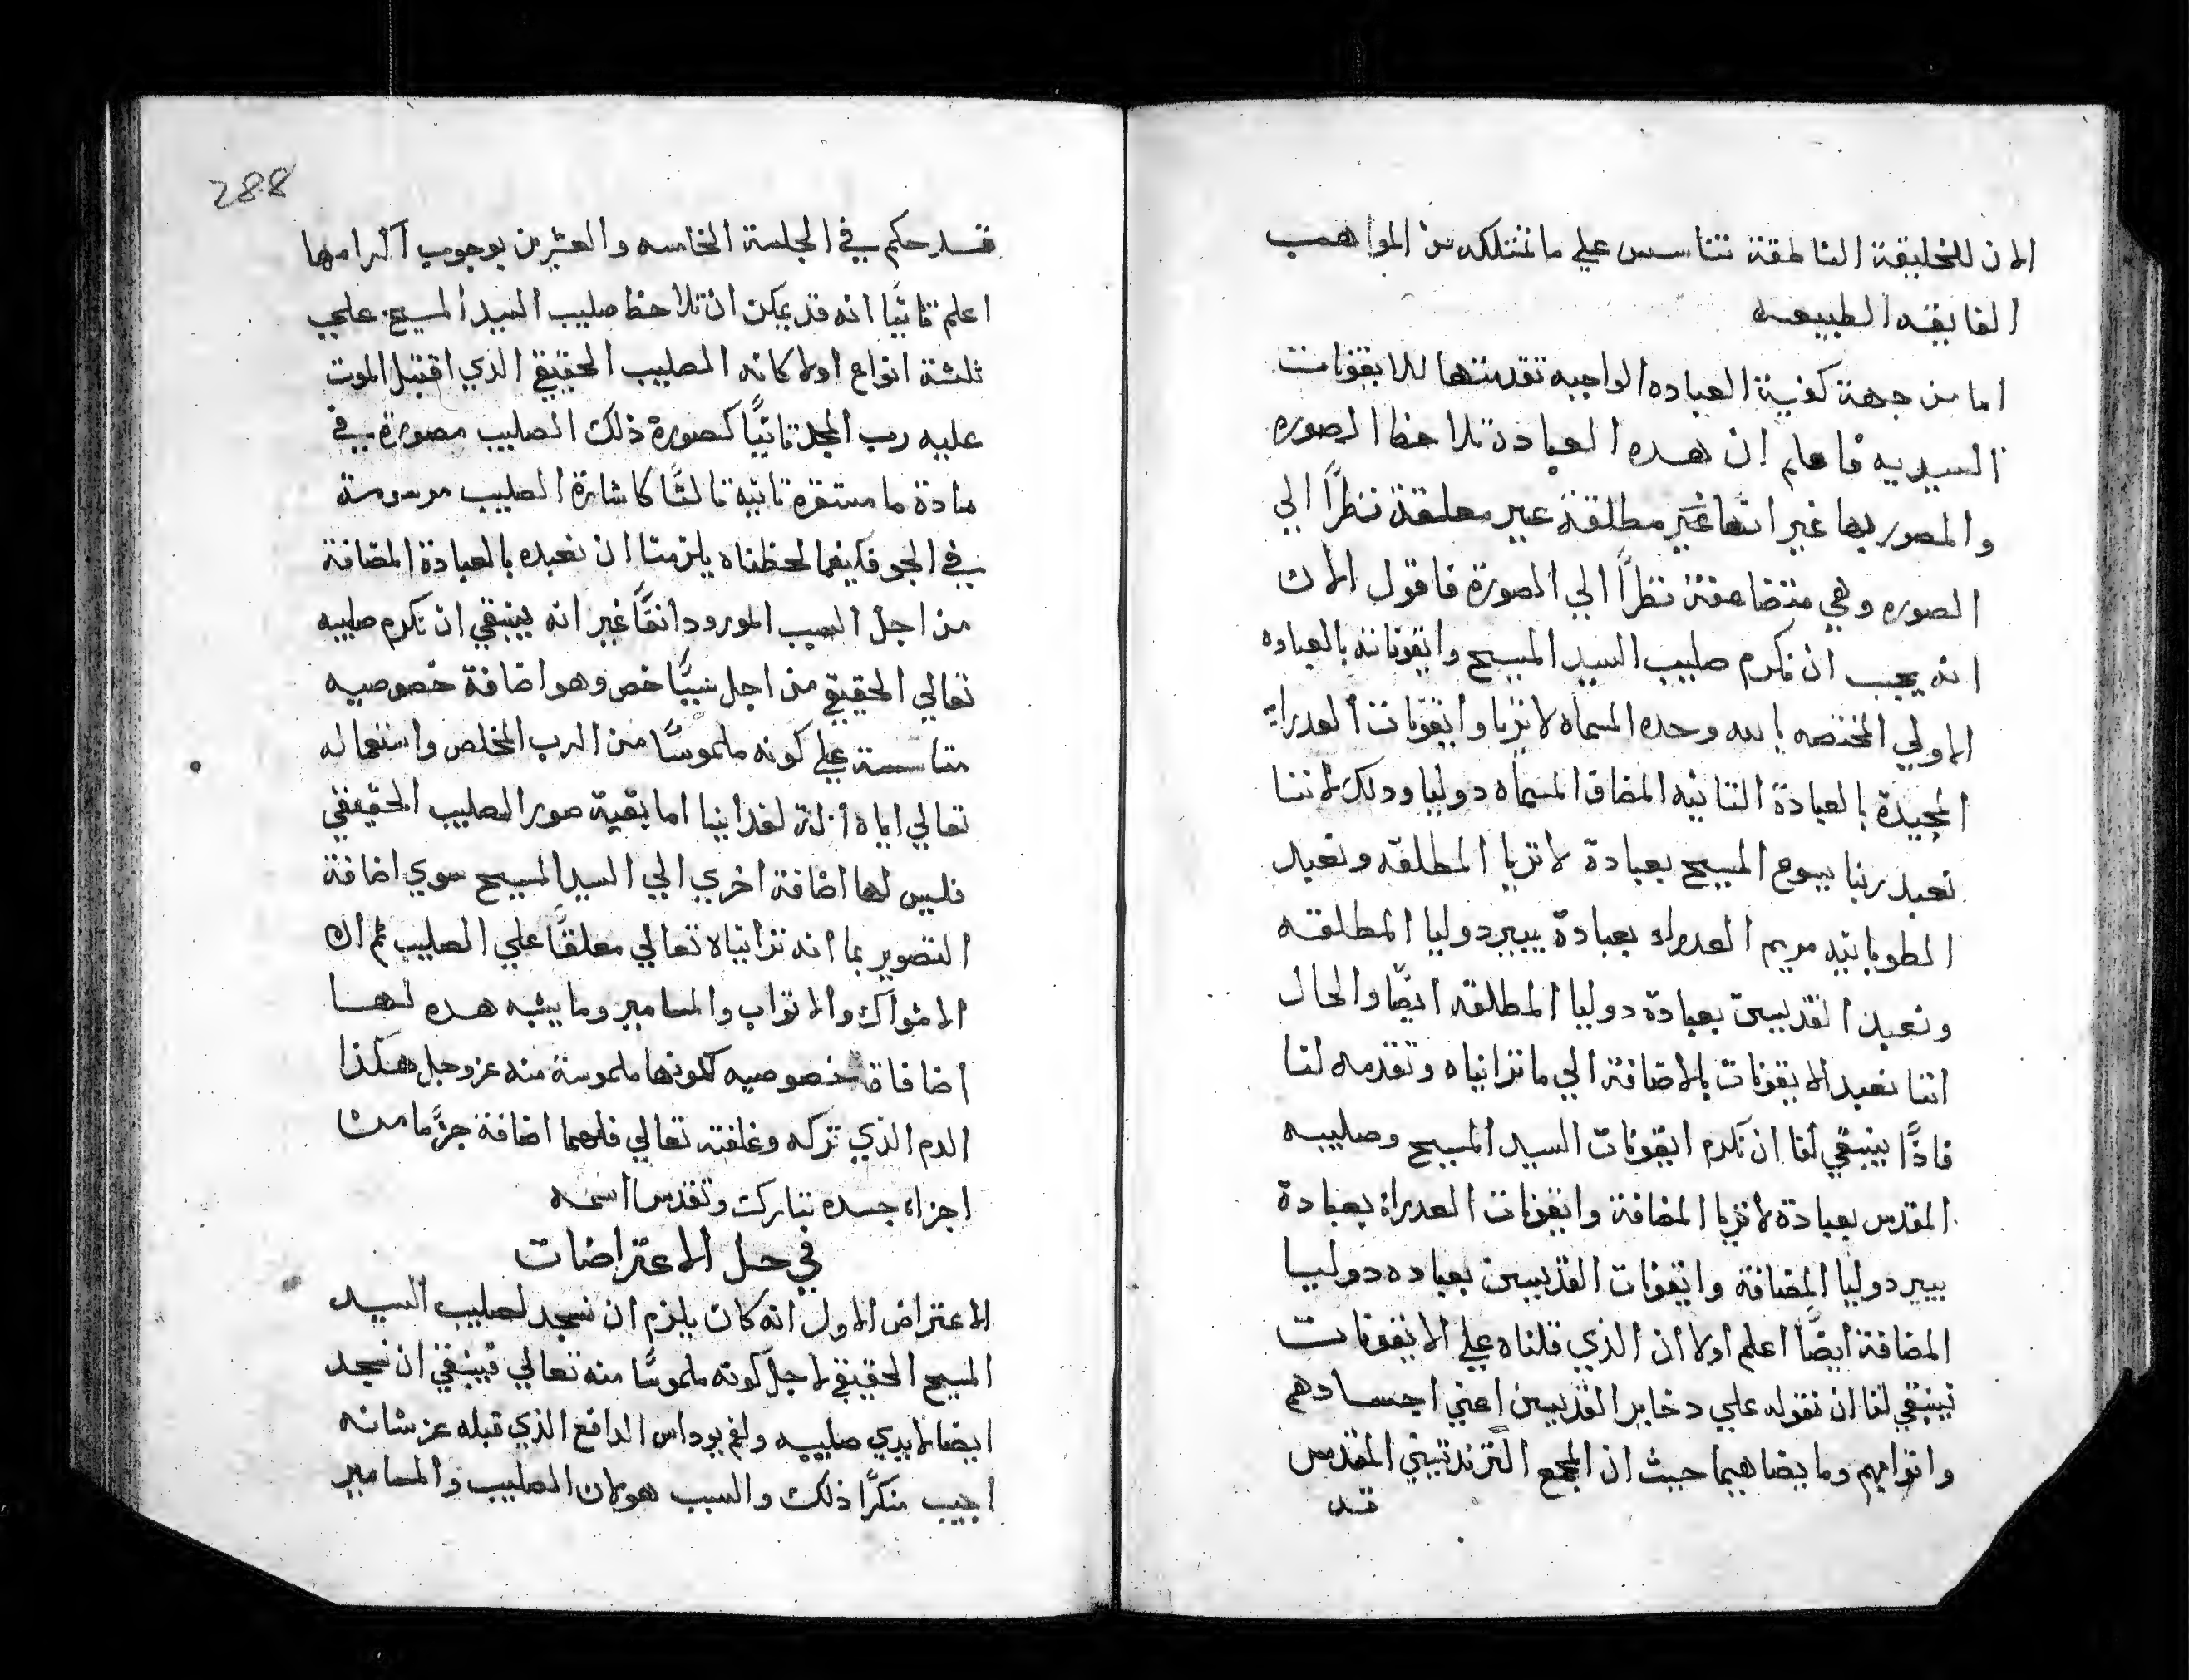 الان للخليقة الناطقة تتاسس علي ما تمتلكه من المواهب
الفايقه الطبيعه
اما من جهة كفية العباده الواجبه تقدمتها للايقونات
السيديه فاعلم ان هده العبادة تلاحظ الصوره
والمصور بها غير انها غير مطلقة غير معلقة نظرًا الي
الصوره وهي متضاعفة نظرًا الي الصورة فاقول الان
انه يجب ان نكرم صليب السيد المسيح وايقوناته بالعباده
الاولي المختصه بالله وحده المسماه لاتريا وايقونات العدراء
المجيدة بالعبادة الثانيه المضاف المسماه دوليا ودلك لاننا
نعبد ربنا يسوع المسيح بعبادة لاتريا المطلقه ونعبد
الطوبانيه مريم العدراء بعبادة يبيردوليا المطلقه
ونعبد القديسين بعبادة دوليا المطلقه ايضًا والحال
اننا نعبد الايقونات بالاضافة الي ما ترانياه وتقدمه لنا
فاذًا ينبغي لنا ان نكرم ايقونات السيد المسيح وصليبه
المقدس بعبادة لاتريا المضافة وايقونات العدراء بعبادة
يبيردوليا المضافة وايقونات القديسين بعباده دوليا
المضافة ايضًا اعلم اولا ان الذي قلناه علي الايقونات
فينبغي لنا ان نقوله علي دخاير القديسين اعني اجسادهم
واثوابهم وما يضاهيها حيث ان المجمع التريدنتيني المقدس
قد
288
قد حكم في الجلسة الخامسه والعشرين بوجوب اكرامها
اعلم ثانيًا انه قد يمكن ان تلاحظ صليب السيد المسيح علي
ثلثة انواع اولا كانه الصليب الحقيقي الذي اقتبل الموت
عليه رب المجد ثانيًا كصورة ذلك الصليب مصورة في
مادة ما مستقره ثابته ثالثًا كاشارة الصليب مرسومة
في الجو فكيفما لحظناه يلزمنا ان نعبده بالعبادة المضافة
من اجل السبب المورود انفًا غير انه ينبغي ان نكرم صليبه
تعالي الحقيقي من اجل سببًا خص وهو اضافة خصوصيه
متاسسة علي كونه ملموسًا من الرب المخلص واستعماله
تعالي اياه الة لفداينا اما بقية صور الصليب الحقيقي
فليس لها اضافة اخري الي السيد المسيح سوي اضافة
التصوير بما انه ترانياه تعالي معلقًا علي الصليب ثم ان
الاشواك والاثواب والمسامير وما يشبه هده لها
اضافات خصوصيه لكونها ملموسة منه عز وجل هكذا
الدم الذي تركه وغلفته تعالي فلهما اضافة جزء ما من
اجزاء جسده تباركت وتقدس اسمه
في حل الاعتراضات
الاعتراض الاول انه كان يلزم ان نسجد لصليب السيد
المسيح الحقيقي لاجل كونه ملموسًا منه تعالي فينبغي ان نسجد
ايضا لايدي صليبيه ولفم يوداس الدافع الذي قبله عز شانه
اجيب منكرًا ذلك والسبب هو لان الصليب والمسامير